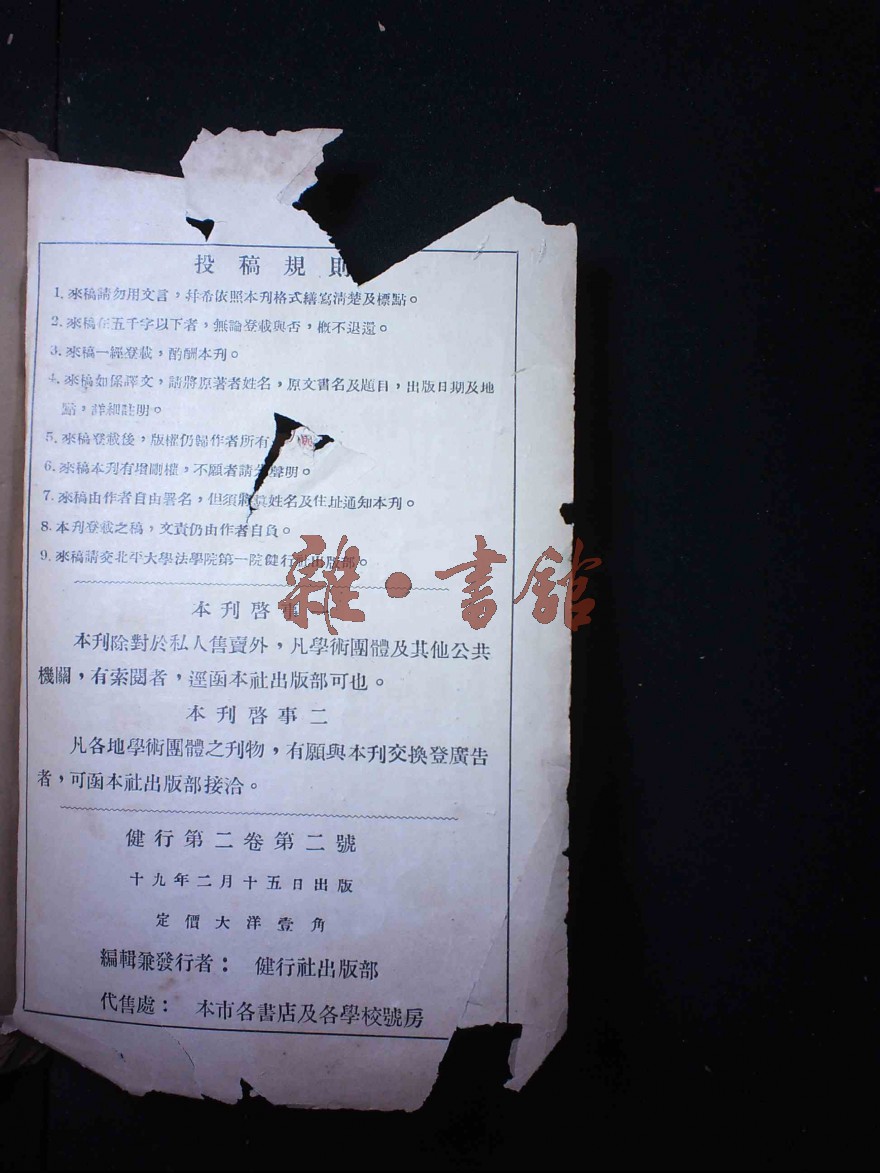 投稿規則
1. 來稿請勿用文言，幷希依照本刊格式繕寫清楚及標點。
2. 來稿在五千字以下者，無論登載與否，槪不退還。
3. 來稿一經登載，酌酬本刊。
4. 來稿如係譯文，請將原著者姓名，原文書名及題目，出版日期及地
點，詳細註明。
5. 來稿登載後，版權仍歸作者所有
6. 來稿本刊有增刪權，不願者請先聲明。
7. 來稿由作者自由署名，但須將眞姓名及住址通知本刊。
8. 本刊登載之稿，文責仍由作者自負。
9. 來稿請交北平大學法學院第一院健行社出版部。
雜·書館
本刊啓事一
本刊除對於私人售賣外，凡學術團體及其他公共
機關，有索閱者，逕函本社出版部可也。
本刊啓事二
凡各地學術團體之刊物，有願與本刊交換登廣告
者，可函本社出版部接洽。
健行第二卷第二號
十九年二月十五日出版
定價大洋壹角
編輯兼發行者： 健行社出版部
代售處： 本市各書店及各學校號房